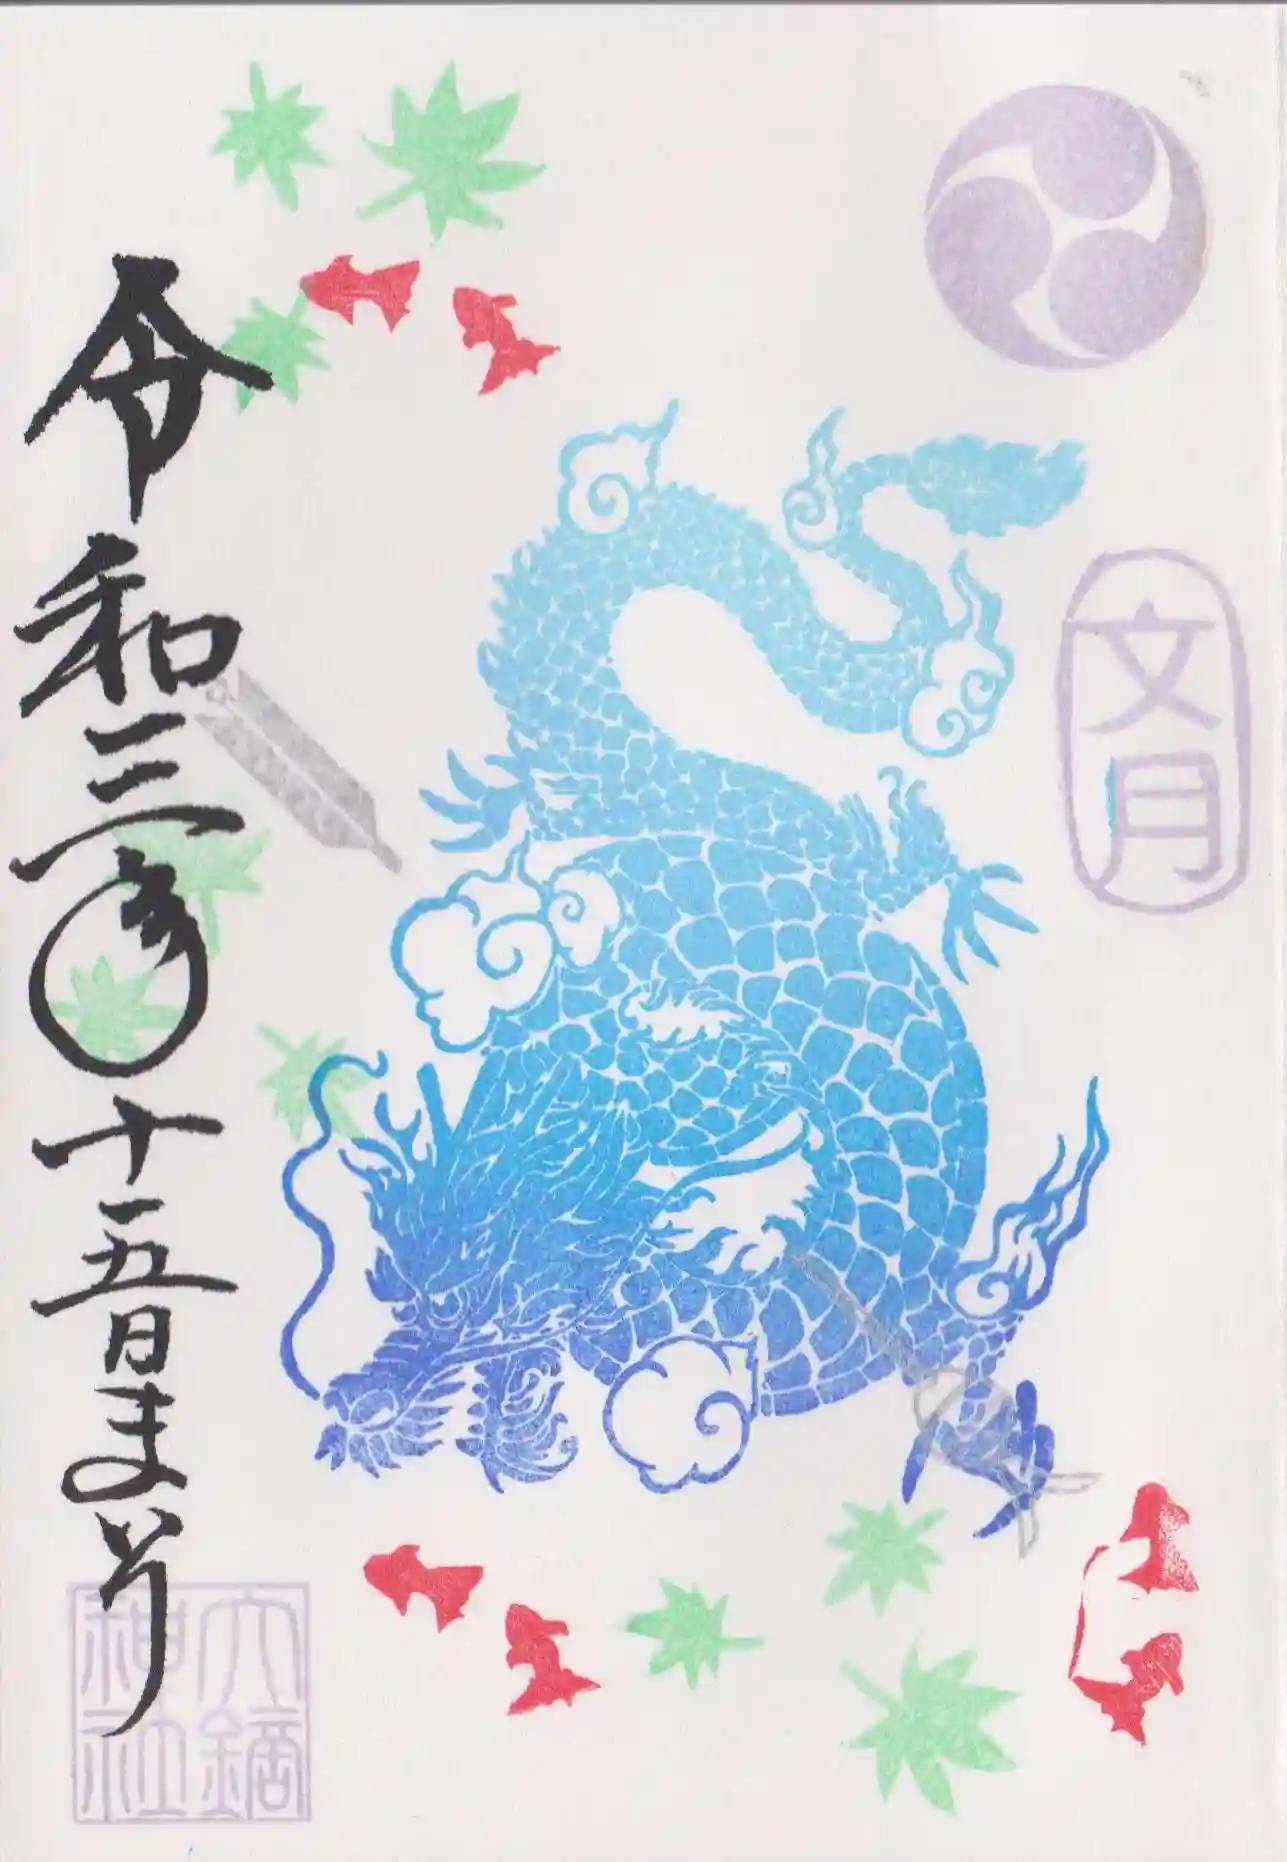 文月
令和三年十五日まいり
大鏑神社